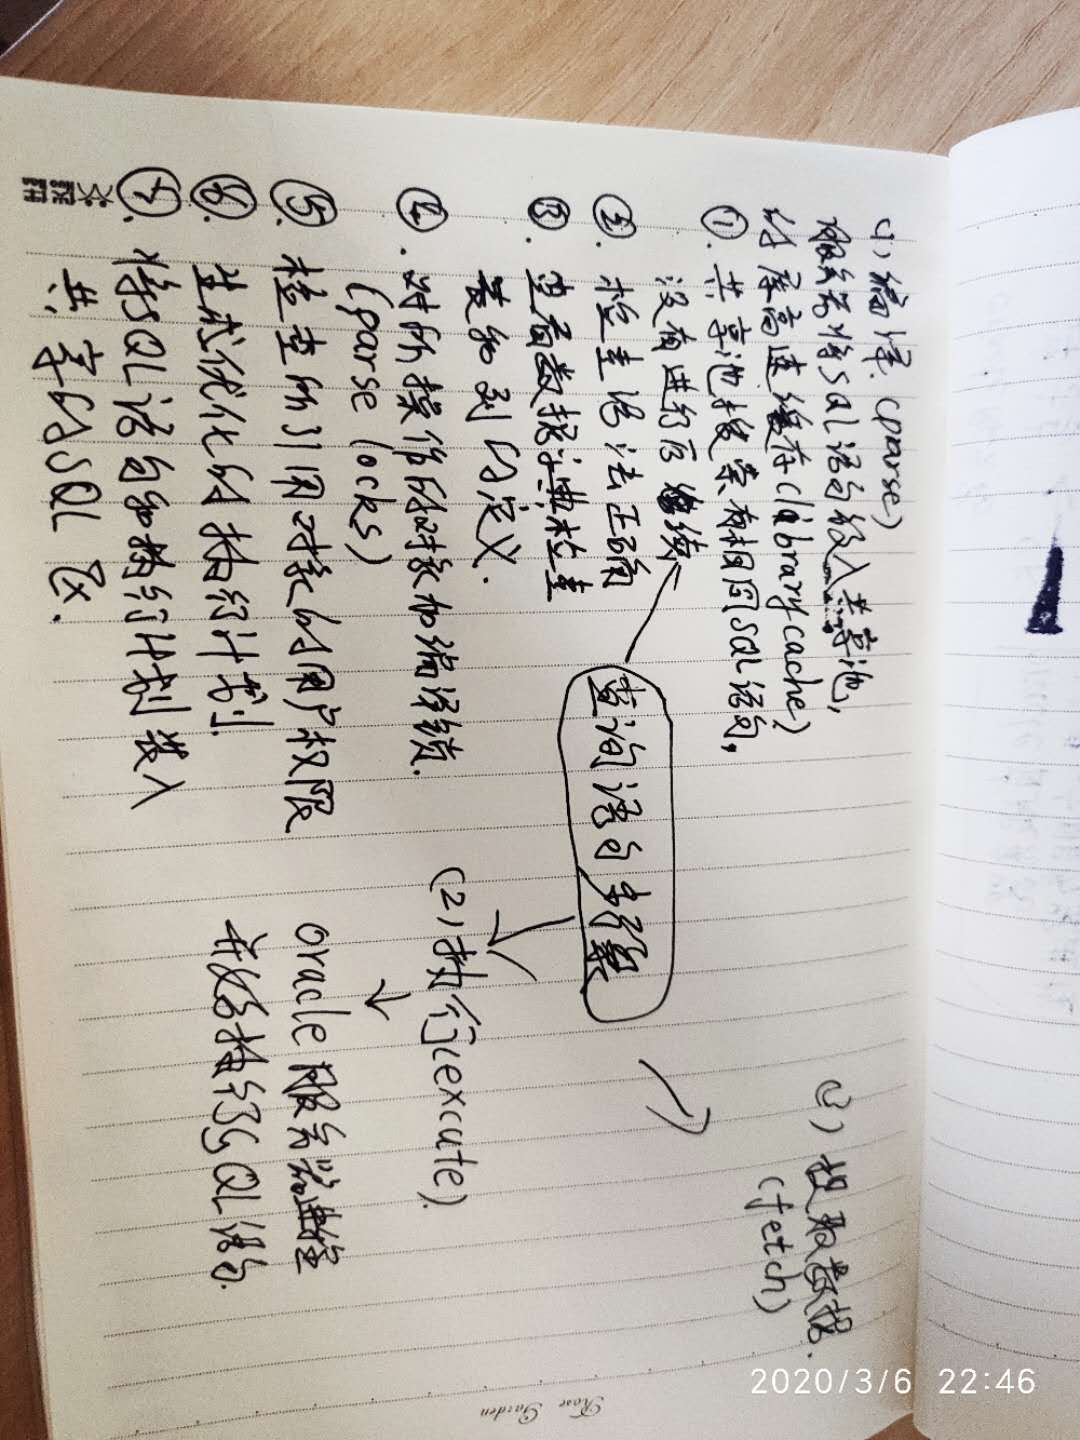 (1) 编译. (parse)
服务器将SQL语句放入共享池,
的库高速缓存(library cache)
①. 共享池搜索有相同SQL语句,
没有进行后继续
②. 检查语法正确
③. 查看数据字典检查
表和列的定义.
④. 对所操作的对象加编译锁.
(parse locks)
⑤. 检查所引用对象的用户权限
⑥. 生成优化的执行计划.
⑦. 将SQL语句和执行计划装入
共享的SQL区.
查询语句步骤
(2) 执行(excute).
oracle服务器进程
开始执行SQL语句.
(3) 提取数据.
(fetch)
Rose Garden
2020/3/6 22:46